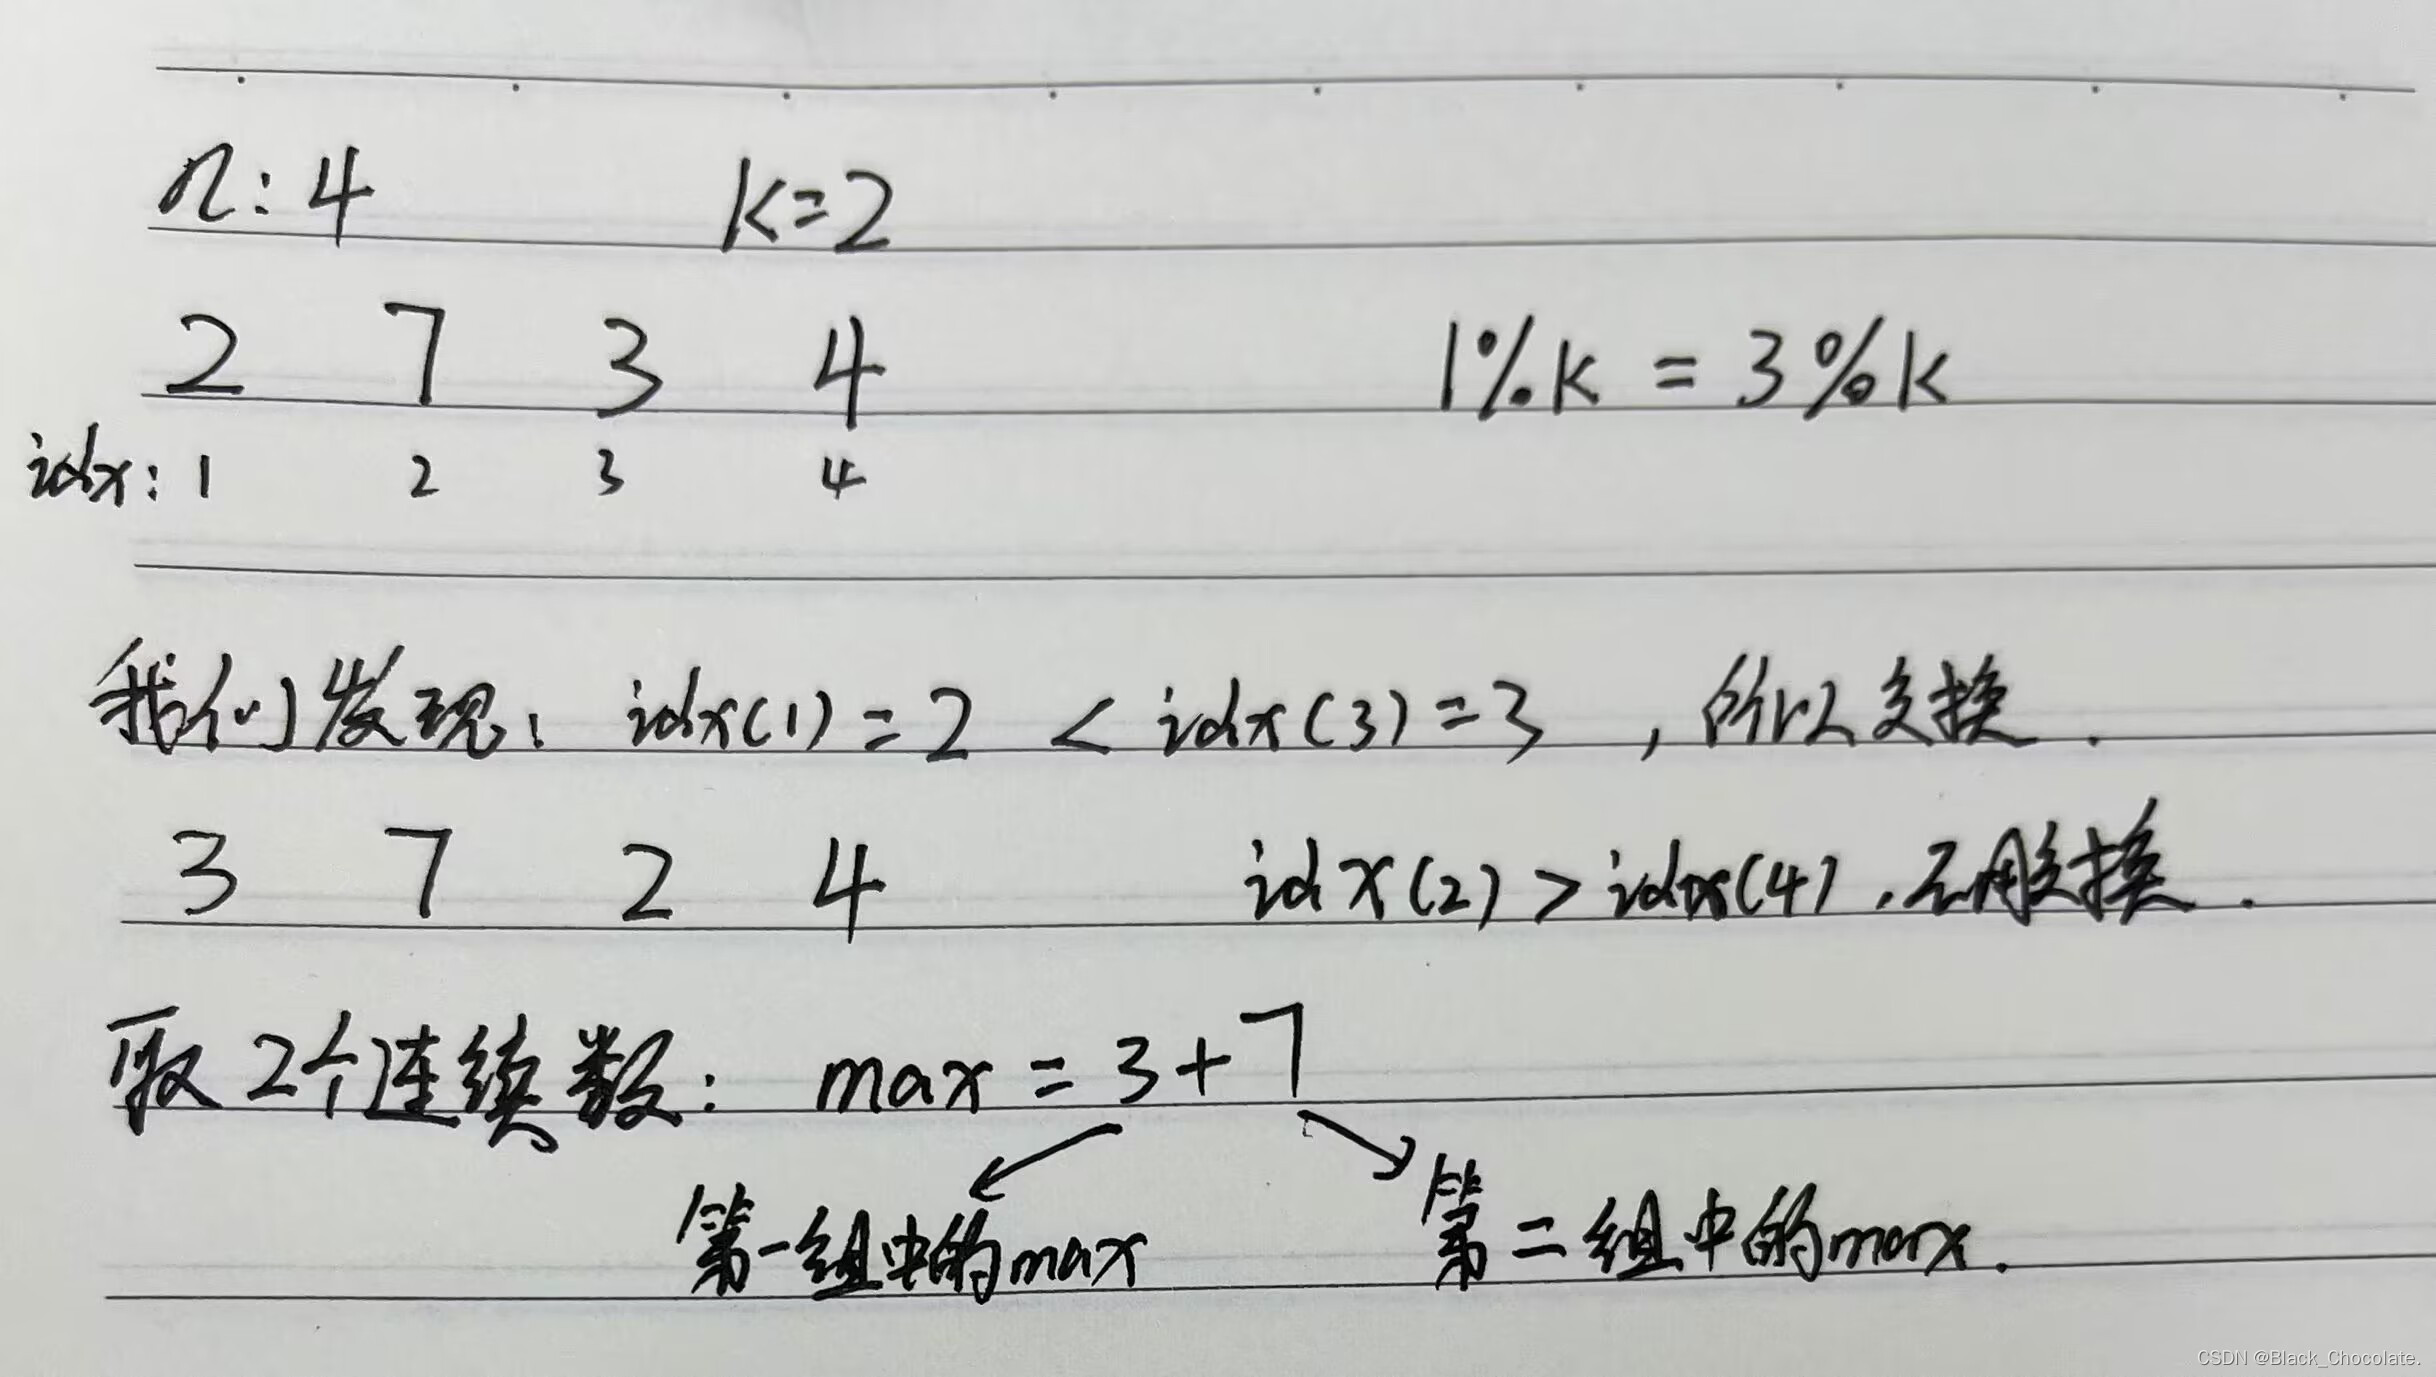 n:4 k=2
2 7 3 4 1%k = 3%k
idx: 1 2 3 4
我们发现: idx(1)=2 < idx(3)=3 ,所以交换.
3 7 2 4 idx(2)>idx(4).不用交换.
取2个连续数: max = 3+7
第一组中的max 第二组中的max.
CSDN @Black_Chocolate.